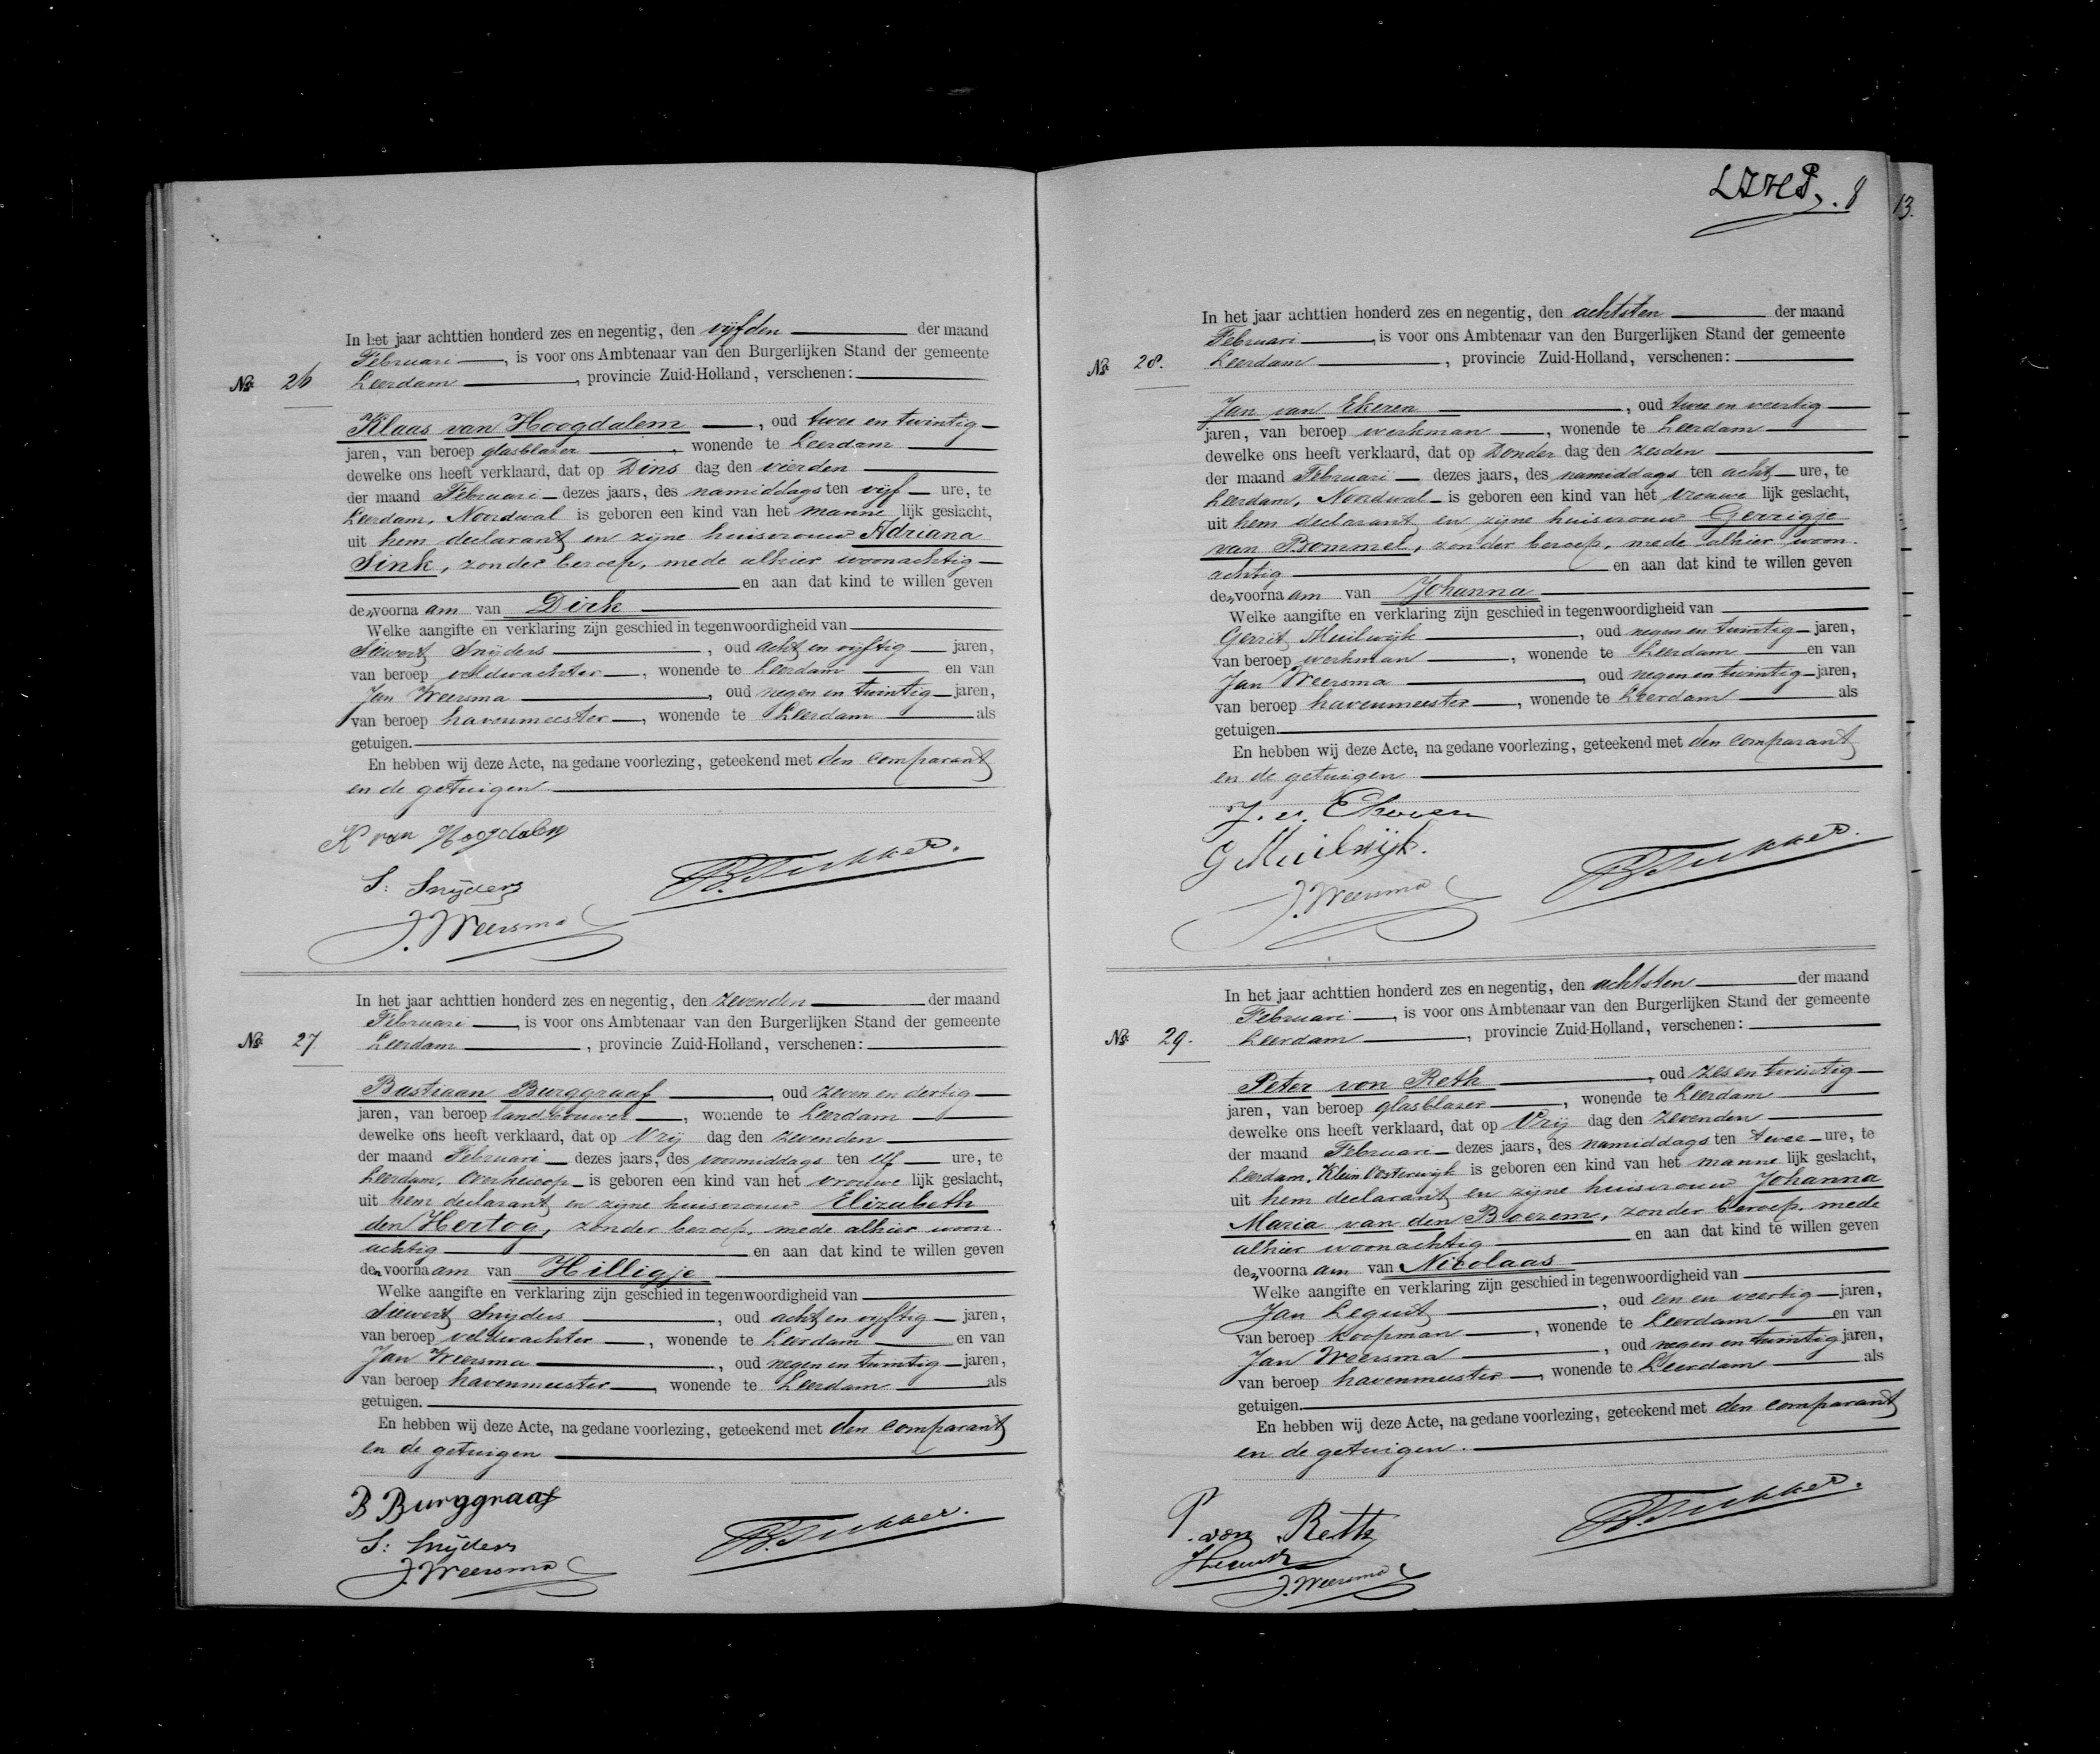 In het jaar achttien honderd zes en negentig, den vijfden der maand
Februari, is voor ons Ambtenaar van den Burgerlijken Stand der gemeente
No. 26 Leerdam, provincie Zuid-Holland, verschenen:
Klaas van Hoogdalem, oud twee en twintig
jaren, van beroep glasblazer, wonende te Leerdam
dewelke ons heeft verklaard, dat op Dins dag den vierden
der maand Februari dezes jaars, des namiddags ten vijf ure, te
Leerdam, Noordwal is geboren een kind van het manne lijk geslacht,
uit hem declarant en zijne huisvrouw Adriana
Sink, zonder beroep, mede alhier woonachtig
en aan dat kind te willen geven
de voorna am van Dirk
Welke aangifte en verklaring zijn geschied in tegenwoordigheid van
Sievert Snijders, oud acht en vijftig jaren,
van beroep veldwachter, wonende te Leerdam en van
Jan Weersma, oud negen en twintig jaren,
van beroep havenmeester, wonende te Leerdam als
getuigen.
En hebben wij deze Acte, na gedane voorlezing, geteekend met den comparant
en de getuigen
K van Hoogdalem
S: Snijders
J. Weersma
In het jaar achttien honderd zes en negentig, den zevenden der maand
Februari, is voor ons Ambtenaar van den Burgerlijken Stand der gemeente
No. 27 Leerdam, provincie Zuid-Holland, verschenen:
Bastiaan Burggraaf, oud zeven en dertig
jaren, van beroep landbouwer, wonende te Leerdam
dewelke ons heeft verklaard, dat op Vrij dag den zevenden
der maand Februari dezes jaars, des voormiddags ten elf ure, te
Leerdam, Overheicop is geboren een kind van het vrouwe lijk geslacht,
uit hem declarant en zijne huisvrouw Elizabeth
den Hertog, zonder beroep, mede alhier woon
achtig en aan dat kind te willen geven
de voorna am van Hilligje
Welke aangifte en verklaring zijn geschied in tegenwoordigheid van
Sievert Snijders, oud acht en vijftig jaren,
van beroep veldwachter, wonende te Leerdam en van
Jan Weersma, oud negen en twintig jaren,
van beroep havenmeester, wonende te Leerdam als
getuigen.
En hebben wij deze Acte, na gedane voorlezing, geteekend met den comparant
en de getuigen
B Burggraaf
S: Snijders
J. Weersma
8
13.
In het jaar achttien honderd zes en negentig, den achtsten der maand
Februari, is voor ons Ambtenaar van den Burgerlijken Stand der gemeente
No. 28. Leerdam, provincie Zuid-Holland, verschenen:
Jan van Ekeren, oud twee en veertig
jaren, van beroep werkman, wonende te Leerdam
dewelke ons heeft verklaard, dat op Donder dag den zesden
der maand Februari dezes jaars, des namiddags ten acht ure, te
Leerdam, Noordwal is geboren een kind van het vrouwe lijk geslacht,
uit hem declarant en zijne huisvrouw Gerrigje
van Bommel, zonder beroep, mede alhier woon
achtig en aan dat kind te willen geven
de voorna am van Johanna
Welke aangifte en verklaring zijn geschied in tegenwoordigheid van
Gerrit Muilwijk, oud negen en twintig jaren,
van beroep werkman, wonende te Leerdam en van
Jan Weersma, oud negen en twintig jaren,
van beroep havenmeester, wonende te Leerdam als
getuigen.
En hebben wij deze Acte, na gedane voorlezing, geteekend met den comparant
en de getuigen
G Muilwijk.
J. Weersma
In het jaar achttien honderd zes en negentig, den achtsten der maand
Februari, is voor ons Ambtenaar van den Burgerlijken Stand der gemeente
No. 29. Leerdam, provincie Zuid-Holland, verschenen:
Peter von Reth, oud zes en twintig
jaren, van beroep glasblazer, wonende te Leerdam
dewelke ons heeft verklaard, dat op Vrij dag den zevenden
der maand Februari dezes jaars, des namiddags ten twee ure, te
Leerdam, Klein Oosterwijk is geboren een kind van het manne lijk geslacht,
uit hem declarant en zijne huisvrouw Johanna
Maria van den Boezem, zonder beroep, mede
alhier woonachtig en aan dat kind te willen geven
de voorna am van Nicolaas
Welke aangifte en verklaring zijn geschied in tegenwoordigheid van
Jan Lequit, oud een en veertig jaren,
van beroep koopman, wonende te Leerdam en van
Jan Weersma, oud negen en twintig jaren,
van beroep havenmeester, wonende te Leerdam als
getuigen.
En hebben wij deze Acte, na gedane voorlezing, geteekend met den comparant
en de getuigen.
P. von Reth
J. Weersma